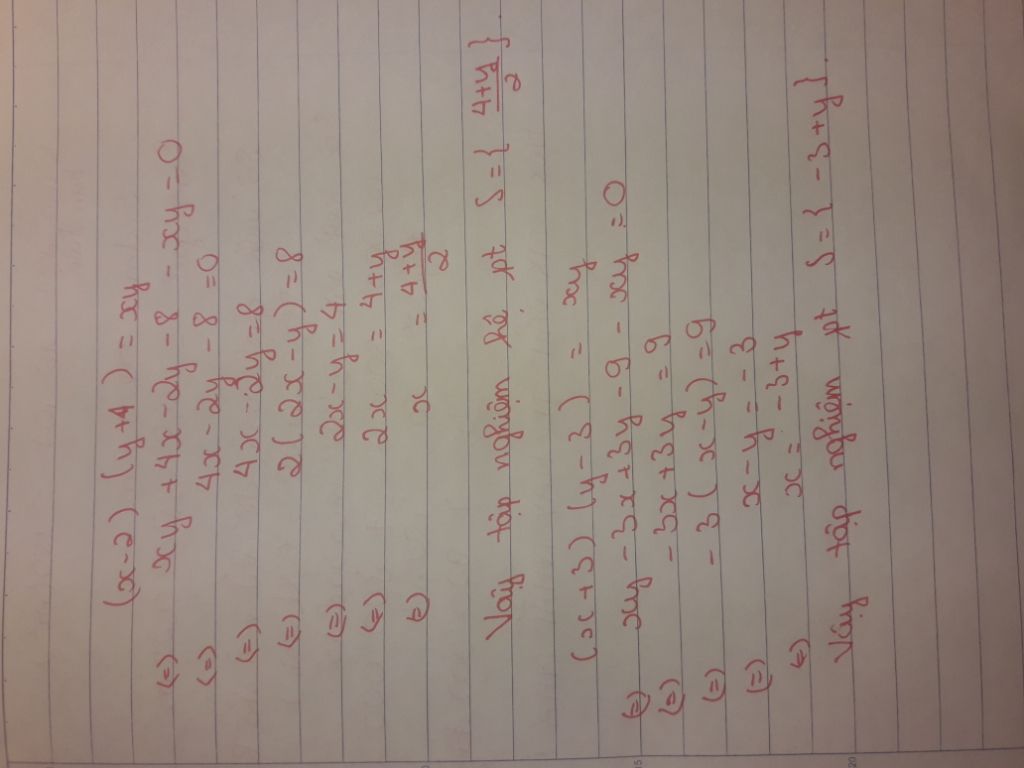 (x-2) (y+4) = xy
(=) xy + 4x - 2y - 8 - xy = 0
(=) 4x - 2y - 8 = 0
(=) 4x - 2y = 8
(=) 2(2x - y) = 8
(=) 2x - y = 4
(=) 2x = 4+y
(=) x = \frac{4+y}{2}
Vậy tập nghiệm hệ pt S = { \frac{4+y}{2} }
(x+3) (y-3) = xy
(=) xy - 3x + 3y - 9 - xy = 0
(=) - 3x + 3y = 9
(=) - 3(x - y) = 9
(=) x - y = - 3
(=) x = - 3 + y
Vậy tập nghiệm pt S = { - 3 + y }.
15
20